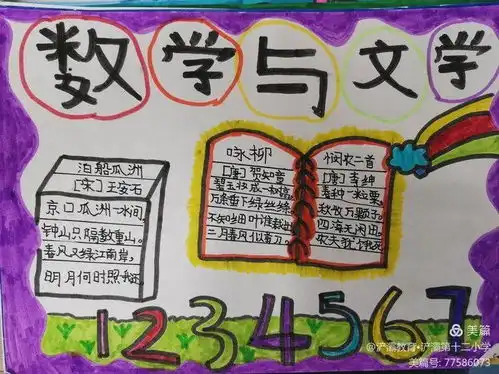 数学与文学
泊船瓜洲
[宋]王安石
京口瓜洲一水间,
钟山只隔数重山。
春风又绿江南岸,
明月何时照我还
咏柳
[唐]贺知章
碧玉妆成一树高
万条垂下绿丝绦
不知细叶谁裁出
二月春风似剪刀。
悯农二首
[唐]李绅
春种一粒粟,
秋收万颗子。
四海无闲田
农夫犹饿死
1234567
美篇
@浐灞教育•浐灞第十二小学
美篇号: 77586073